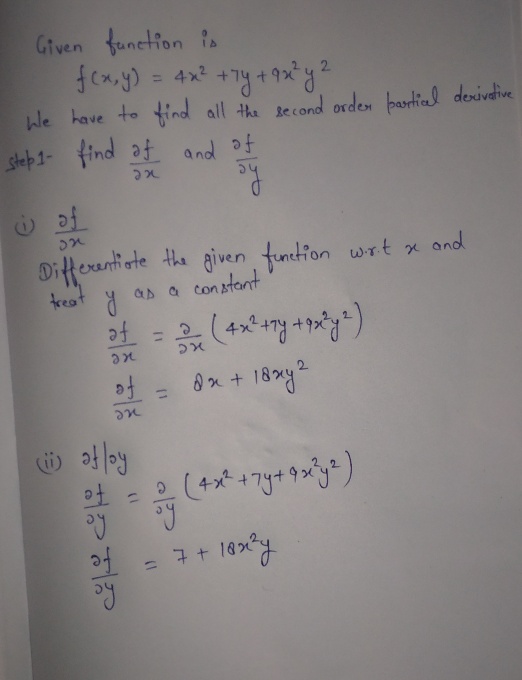 Given function is
f(x,y) = 4x² + 7y + 9x² y²
We have to find all the second order partial derivative
step 1- find ∂f/∂x and ∂f/∂y
(i) ∂f/∂x
Differentiate the given function w.r.t x and
treat y as a constant
∂f/∂x = ∂/∂x (4x² + 7y + 9x²y²)
∂f/∂x = 8x + 18xy²
(ii) ∂f/∂y
∂f/∂y = ∂/∂y (4x² + 7y + 9x²y²)
∂f/∂y = 7 + 18x²y